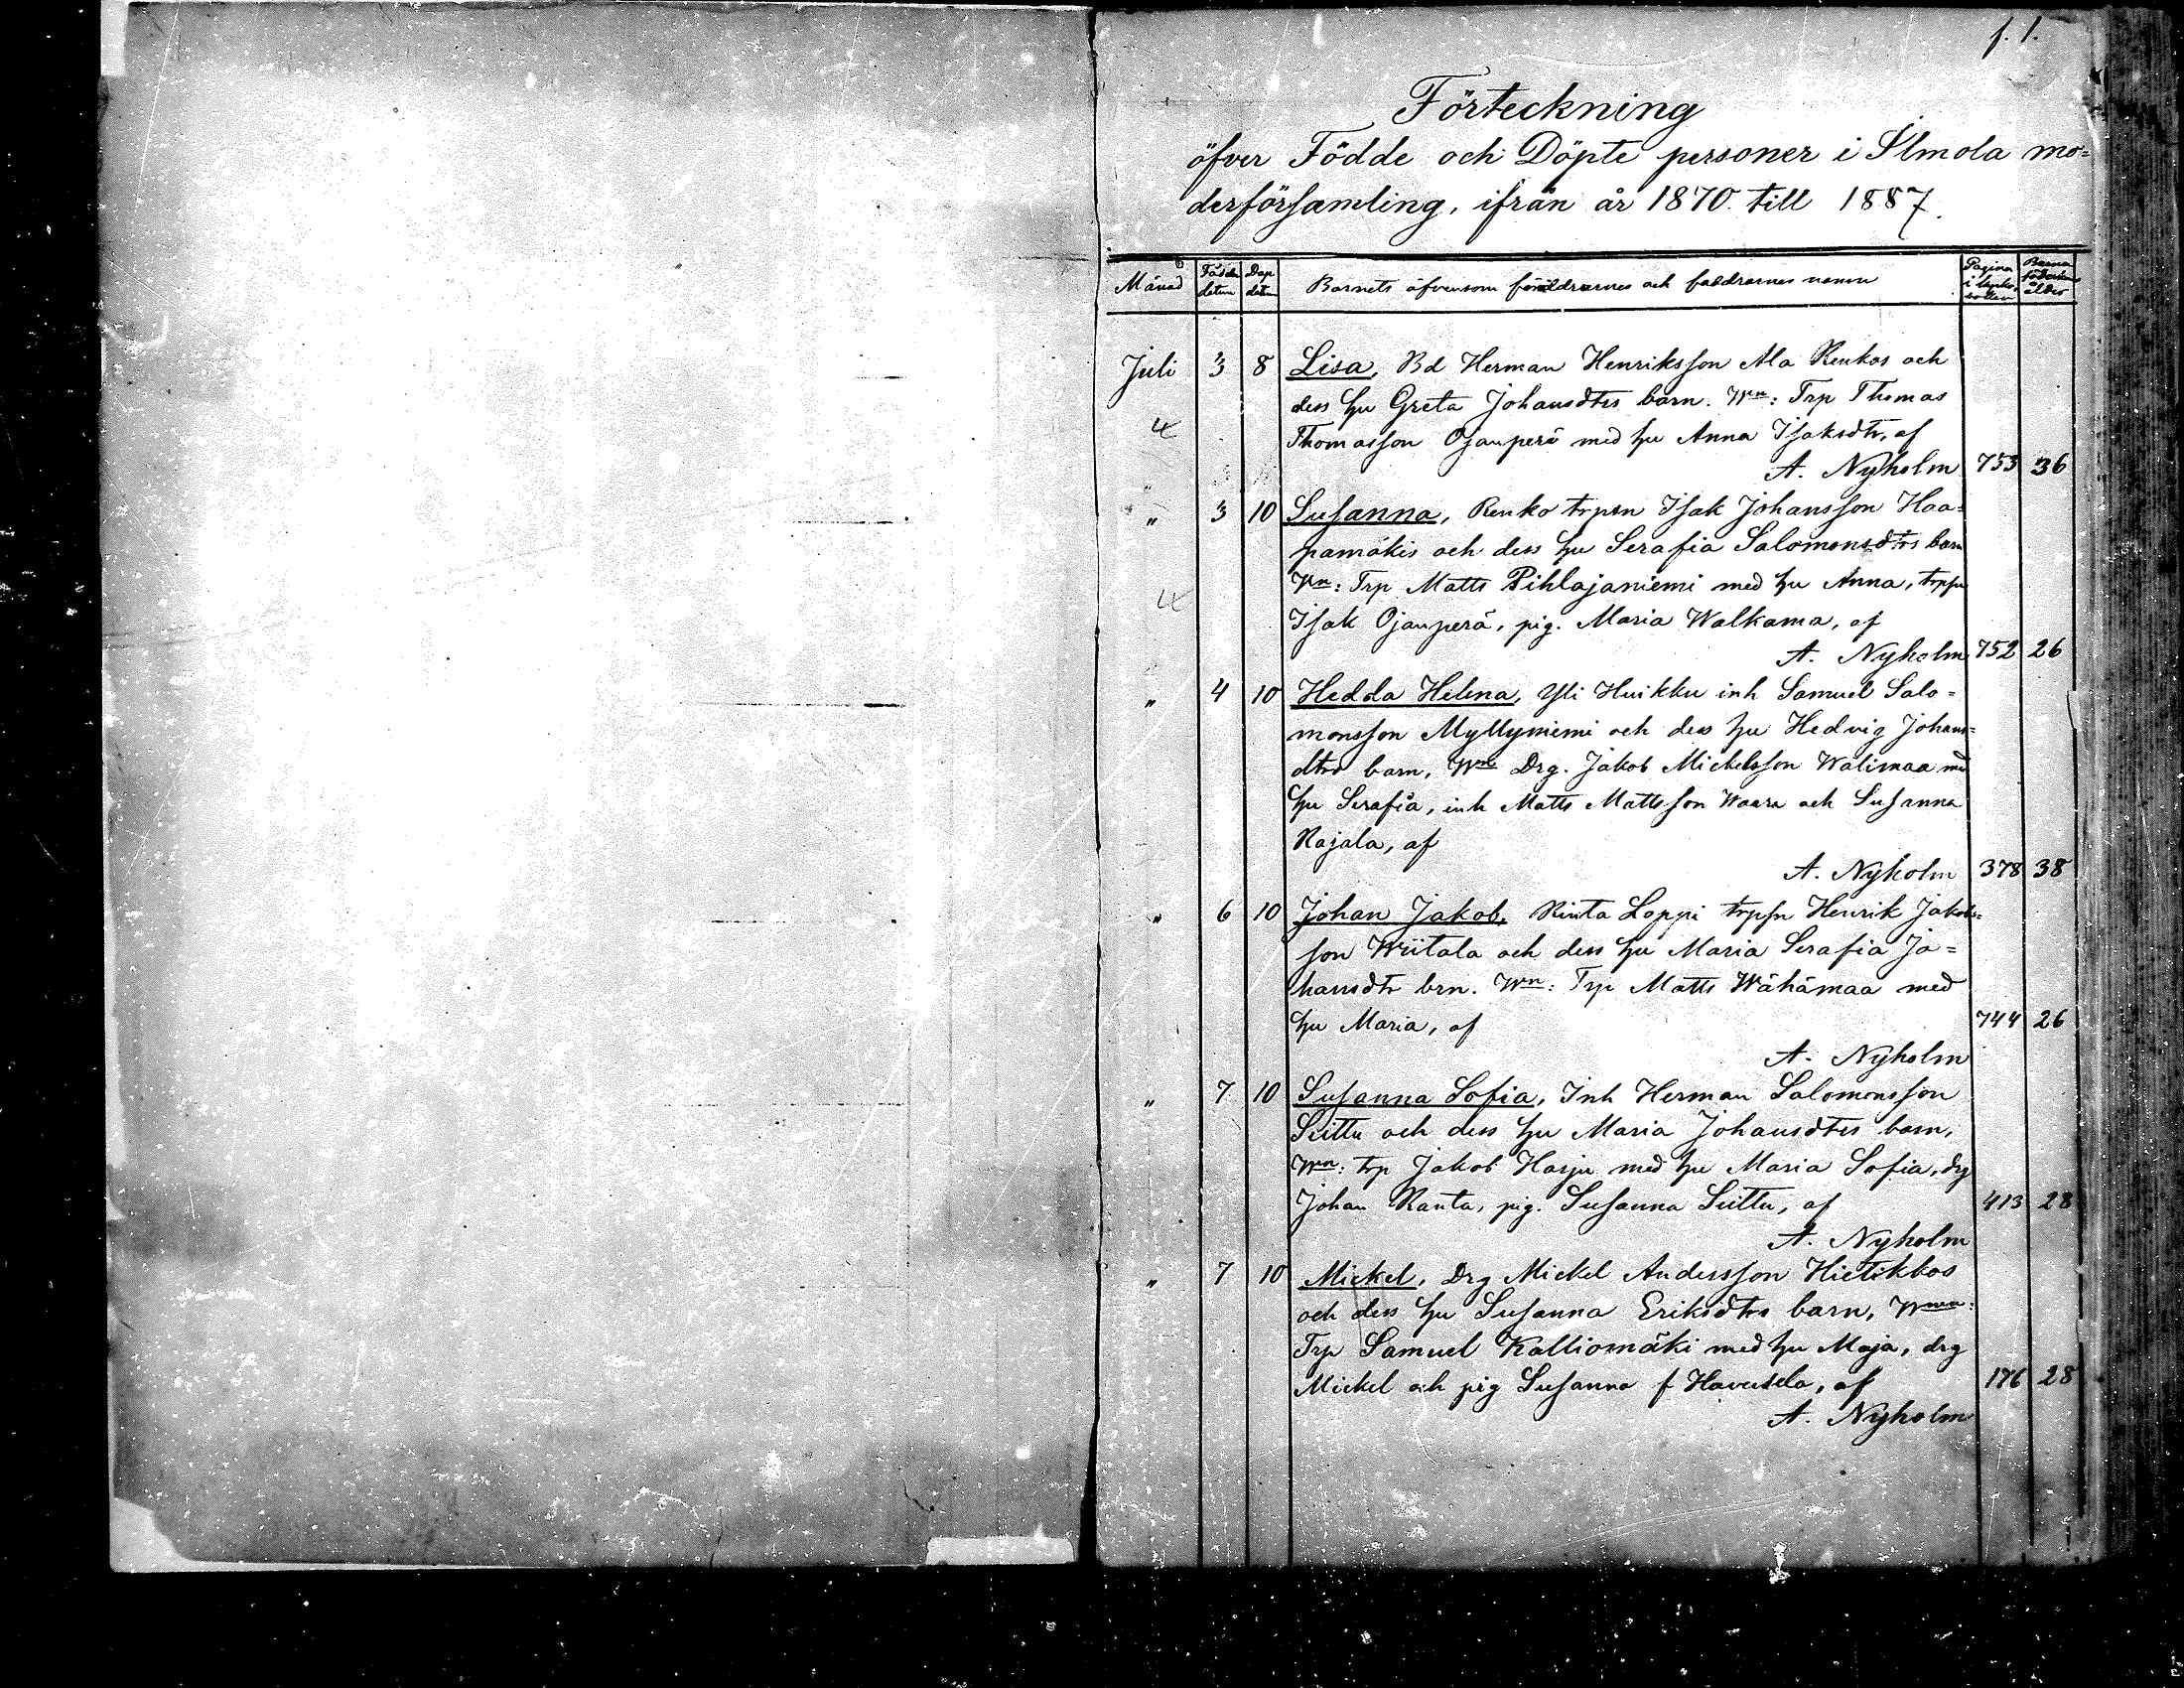 f. 1.
Förteckning
öfver Födde och Döpte personer i Ilmola mo=
derförsamling, ifrån år 1870 till 1887.
Månad Födelse datum Dop datum Barnets äfvensom föräldrarnes och faddrarnes namn Pagina i kyrko-boken Barna föderskans ålder
Juli 3 8 Lisa, Bd Herman Henriksson Ala Renkos och
dess hu Greta Johansdtrs barn. Wn: Trp Thomas
4
Thomasson Ojanperä med hu Anna Isaksdtr, af
A. Nyholm 753 36
" 3 10 Susanna, Renko trpsn Isak Johansson Haa=
pamäkis och dess hu Serafia Salomonsdtrs barn
Wn: Trp Matts Pihlajaniemi med hu Anna, trpsn
4
Isak Ojanperä, pig. Maria Walkama, af
A. Nyholm 752 26
" 4 10 Hedda Helena, Yli Huikku inh Samuel Salo=
monsson Myllyniemi och dess hu Hedvig Johans=
dtrs barn, Wne Drg. Jakob Mickelsson Walimaa med
hu Serafia, inh Matts Mattsson Waara och Susanna
Rajala, af
A. Nyholm 378 38
" 6 10 Johan Jakob, Rinta Loppi trpsn Henrik Jakobs=
son Wiitala och dess hu Maria Serafia Jo=
hansdtr brn. Wn: Trp Matts Wähämaa med
hu Maria, af 744 26
A. Nyholm
" 7 10 Susanna Sofia, Inh Herman Salomonsson
Luttu och dess hu Maria Johansdtrs barn,
Wn: trp Jakob Harju med hu Maria Sofia, drg
Johan Ranta, pig. Susanna Luttu, af 413 28
A. Nyholm
" 7 10 Mickel, Drg Mickel Andersson Hietikkos
och dess hu Susanna Eriksdtrs barn, Wnen:
Trp Samuel Kalliomäki med hu Maja, drg
Mickel och pig Susanna f Havusela, af 176 28
A. Nyholm